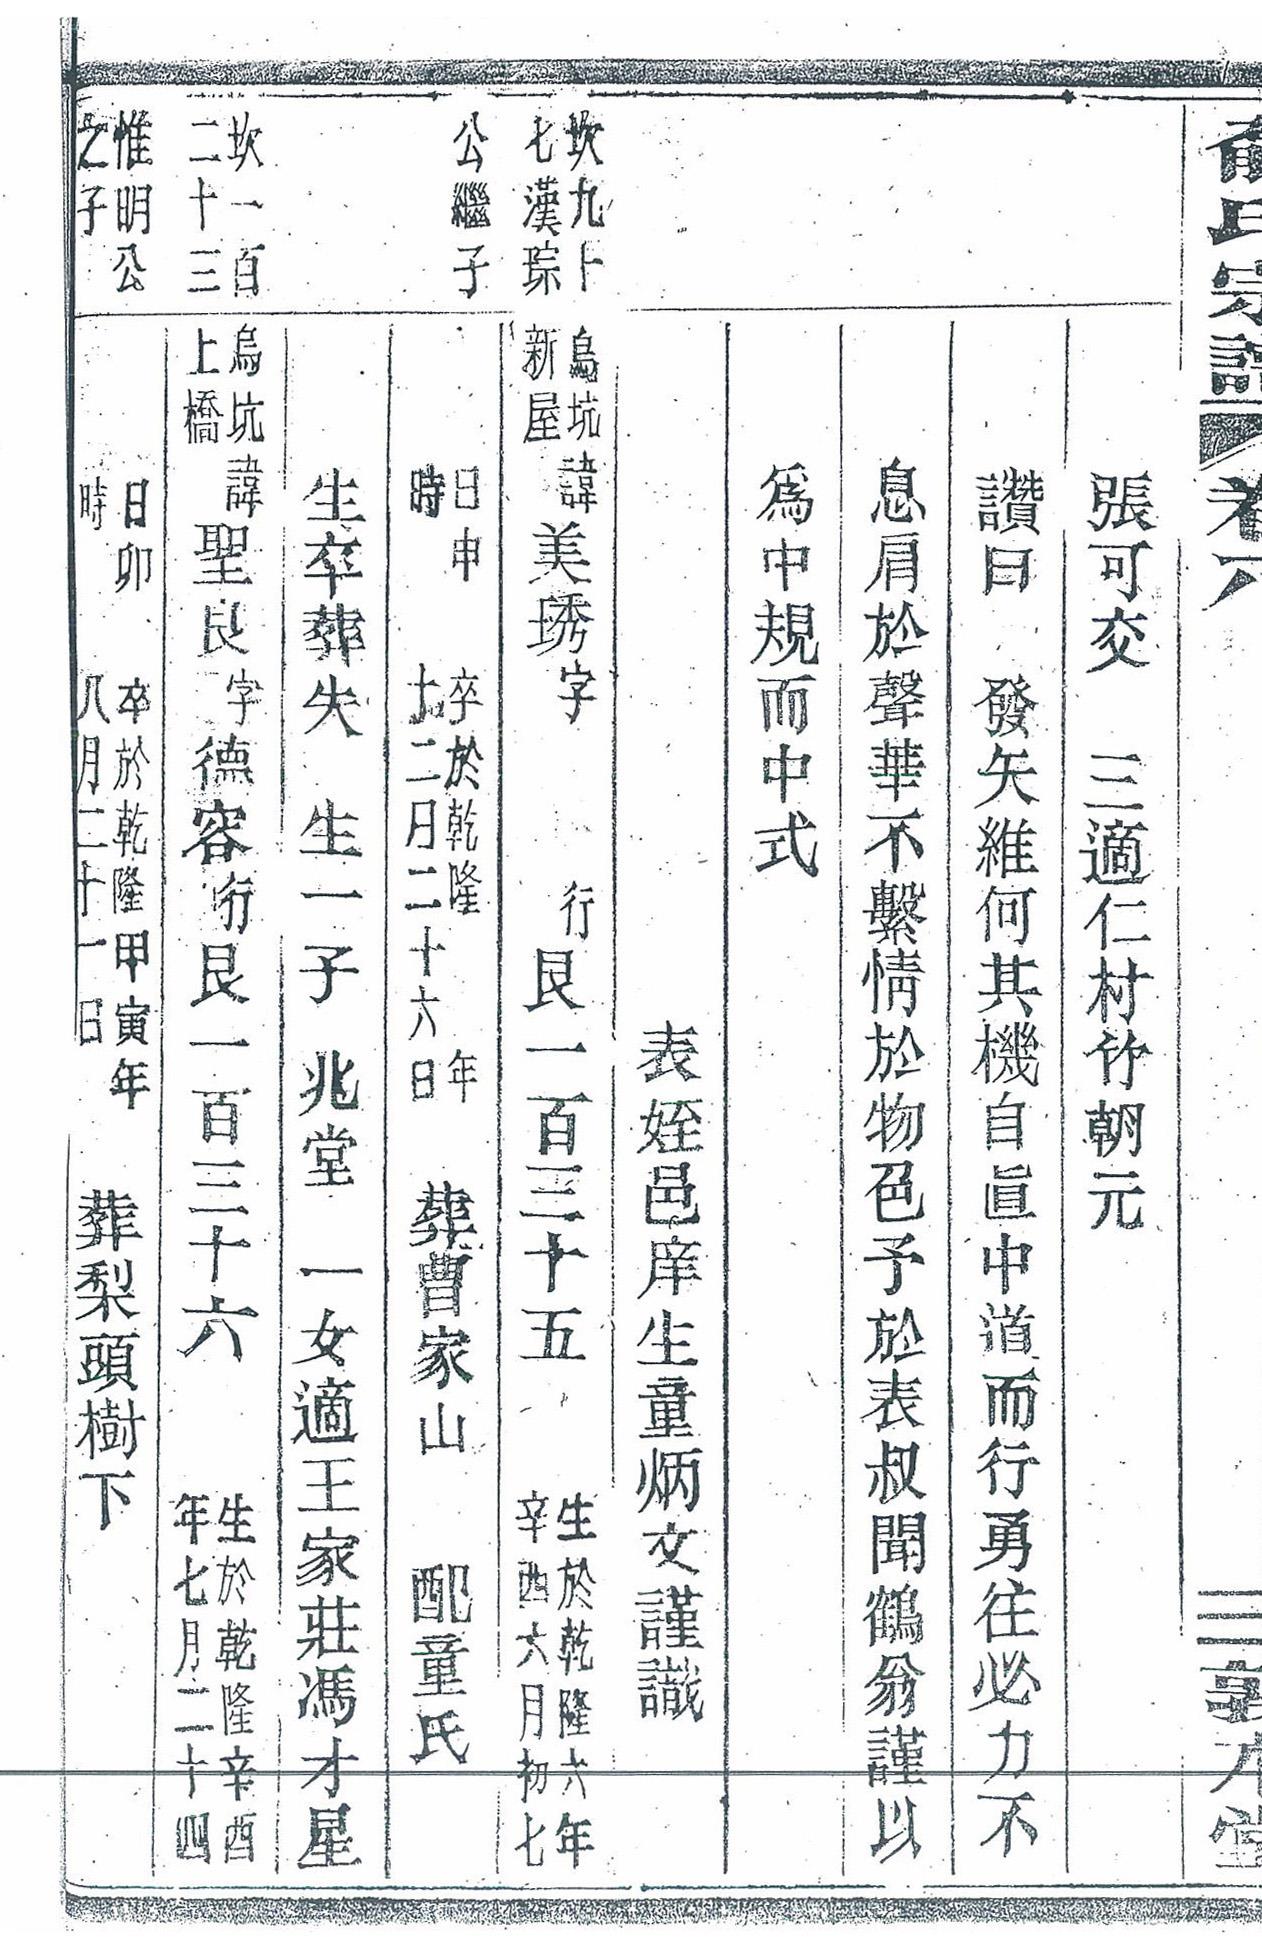 俞氏宗譜 卷六 三 敦本堂
張可交 三適仁村竹朝元
讚曰 發矢維何其機自眞中道而行勇往必力不
息肩於聲華不繫情於物色予於表叔聞鶴翁謹以
爲中規而中式
表姪邑庠生童炳文謹識
坎九十
七漢琮
烏坑
新屋
諱美琇字 行艮一百三十五
生於乾隆六年
辛酉六月初七
公繼子
日申
時
卒於乾隆 年
十二月二十六日
葬曹家山 配童氏
生卒葬失 生一子 兆堂 一女適王家莊馮才星
坎一百
二十三
烏坑
上橋
諱聖良字德容行艮一百三十六
生於乾隆辛酉
年七月二十四
惟明公
之子
日卯
時
卒於乾隆甲寅年
八月二十一日
葬梨頭樹下